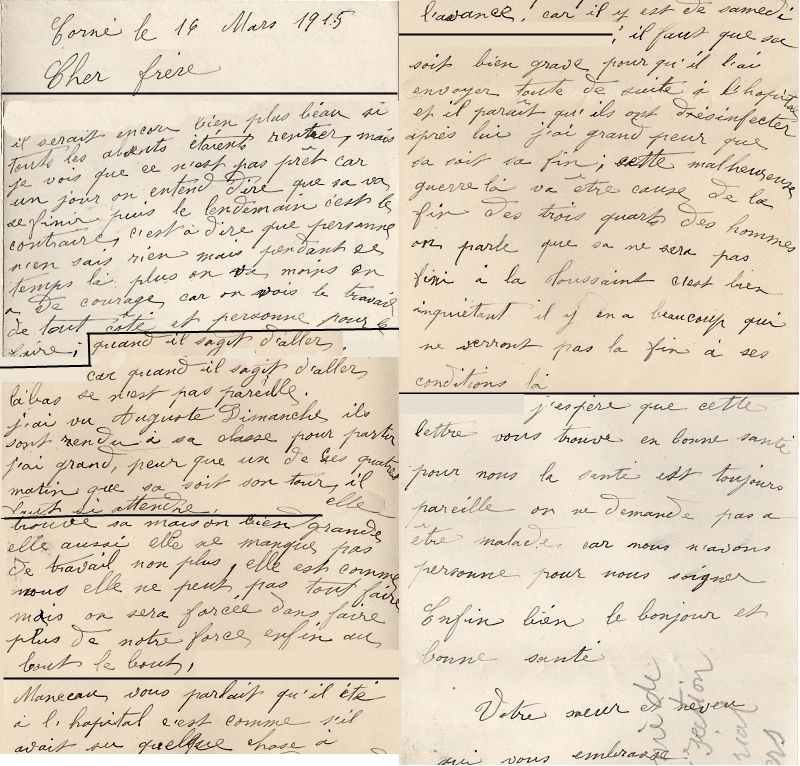 Corné le 16 Mars 1915
Cher frère
il serait encore bien plus beau si
touts les absents étaients rentrer, mais
je vois que ce n'est pas prêt car
un jour on entend dire que sa va
se finir puis le lendemain c'est le
contraire, c'est à dire que personne
n'en sais rien mais pendant ce
temps là plus on va moins on
a de courage car on vois le travail
de tout côté et personne pour le
faire; quand il sagit d'aller
car quand il sagit d'aller
làbas se n'est pas pareille.
j'ai vu Auguste Dimanche ils
sont rendu à sa classe pour partir
j'ai grand, peur que un de ces quatres
matin que sa soit son tour, il
faut si attendre. elle
trouve sa maison bien grande
elle aussi elle ne manque pas
de travail non plus, elle est comme
nous elle ne peut pas tout faire
mais on sera forcée dans faire
plus de notre force enfin au
bout le bout,
Maneceau vous parlait qu'il été
à l'hapital c'est comme s'il
avait su quelque chose à
l'avance, car il y est de samedi
; il faut que sa
soit bien grave pour qu'il l'ai
envoyer toute de suite à l'hopital
et il paraît qu'ils ont désinfecter
après lui j'ai grand peur que
sa soit sa fin; cette malheureuse
guerre là va être cause de la
fin des trois quarts des hommes
on parle que sa ne sera pas
fini à la Toussaint c'est bien
inquiétant il y en a beaucoup qui
ne verront pas la fin à ses
conditions là
j'espère que cette
lettre vous trouve en bonne santé
pour nous la santé est toujours
pareille on ne demande pas a
être malade, car nous n'avons
personne pour nous soigner
Enfin bien le bonjour et
bonne santé
Votre sœur et neveu
qui vous embrasse